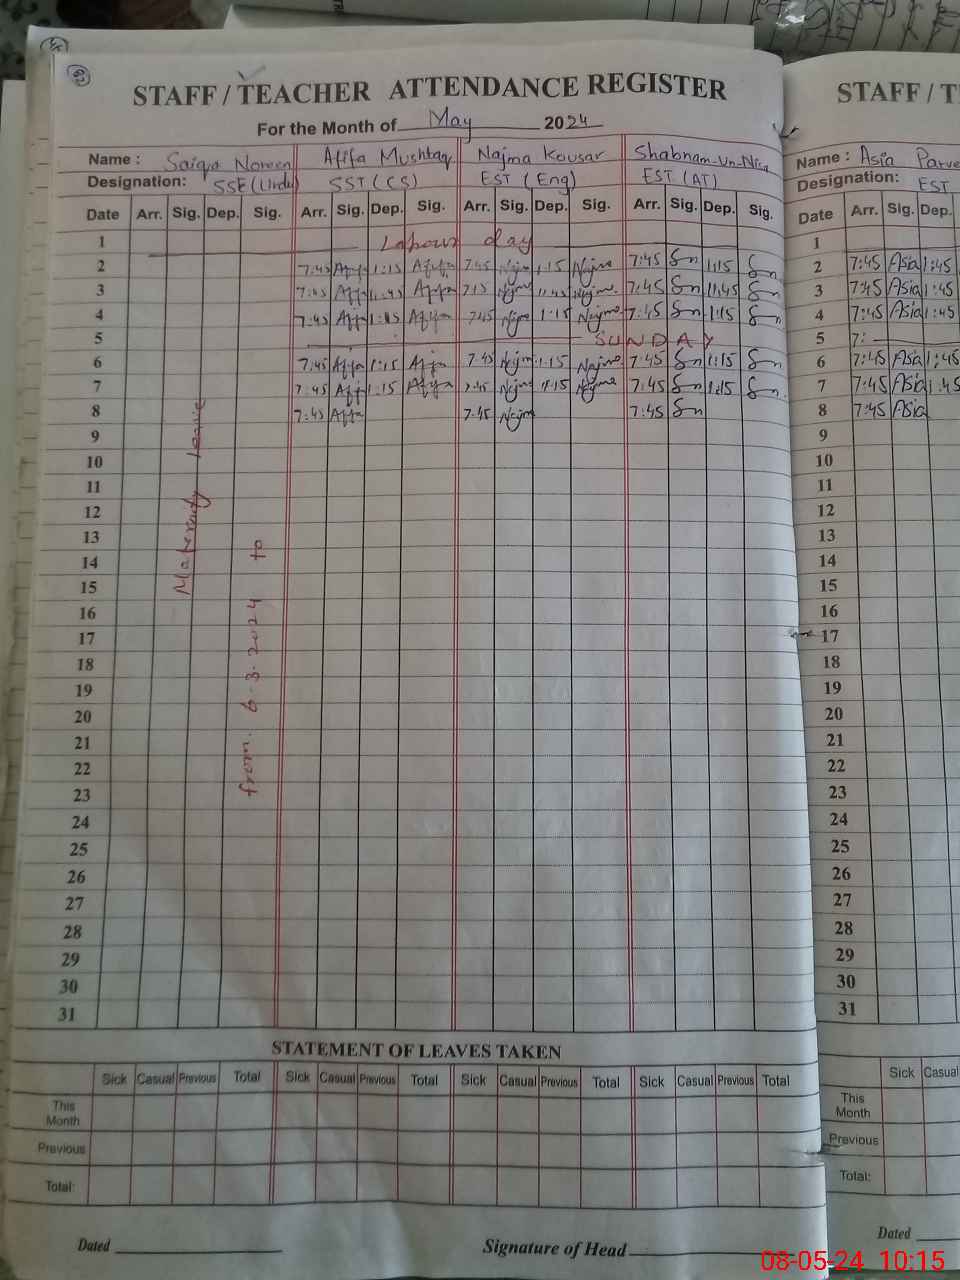 STAFF / TEACHER ATTENDANCE REGISTER
For the Month of May 2024
Name : Saiqa Noreen Afifa Mushtaq Najma Kousar Shabnam-Un-Nisa
Designation: SSE (Urdu) SST (CS) EST (Eng) EST (AT)
Date Arr. Sig. Dep. Sig. Arr. Sig. Dep. Sig. Arr. Sig. Dep. Sig. Arr. Sig. Dep. Sig.
1 Labour day
2 7:45 1:15 7:45 1:15 7:45 Sn 1:15 Sn
3 7:45 11:45 11:45 7:45 Sn 11:45 Sn
4 7:45 1:15 7:45 1:15 7:45 Sn 1:15 Sn
5 SUNDAY
6 7:45 1:15 7:45 1:15 7:45 Sn 1:15 Sn
7 7:45 1:15 7:45 1:15 7:45 Sn 1:15 Sn
8 7:45 7:45 7:45 Sn
9
10
11
12
13
14
15
16
17
18
19
20
21
22
23
24
25
26
27
28
29
30
31
Maternity leave
from 6.3.2024 to
STATEMENT OF LEAVES TAKEN
Sick Casual Previous Total Sick Casual Previous Total Sick Casual Previous Total Sick Casual Previous Total
This
Month
Previous
Total:
Dated Signature of Head
STAFF / T
Name : Asia
Designation: EST
Date Arr. Sig. Dep.
1
2 7:45 Asia 1:45
3 7:45 Asia 1:45
4 7:45 Asia 1:45
5 7:
6 7:45 Asia 1:45
7 7:45 Asia 1:45
8 7:45 Asia
9
10
11
12
13
14
15
16
17
18
19
20
21
22
23
24
25
26
27
28
29
30
31
Sick Casual
This
Month
Previous
Total:
Dated
08-05-24 10:15